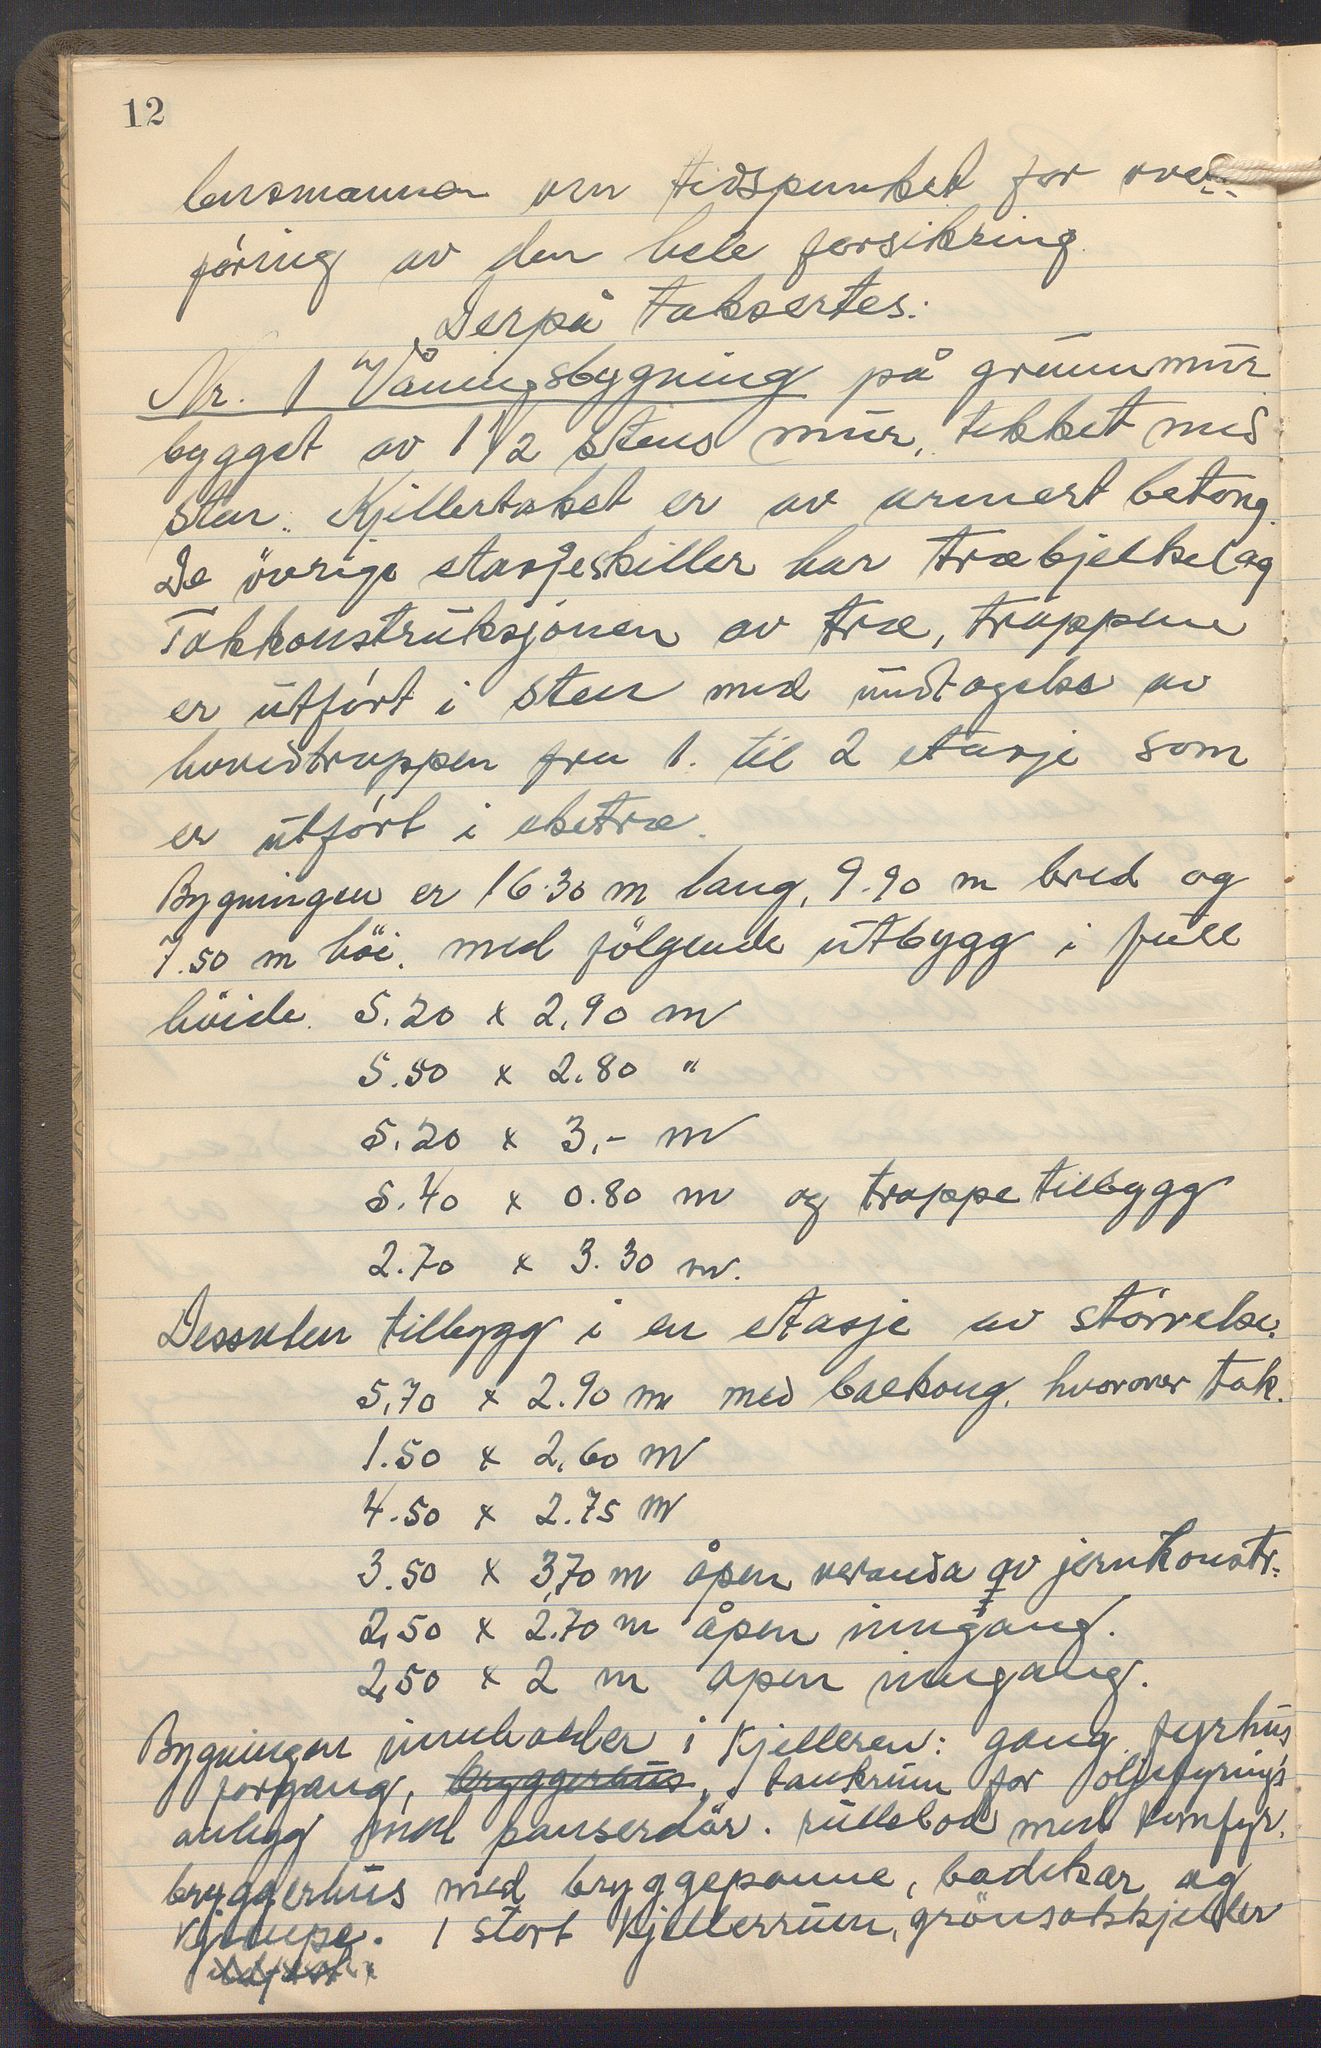 12
lensmannen om tidspunktet for over-
föring av den hele forsikring.
Derpå taksertes:
Nr. 1 Våningsbygning på grunnmur
bygget av 1 1/2 stens mur, tekket med
sten. Kjellertaket er av armert betong.
De övrige etasjeskiller har træbjelkelag
Takkonstruksjonen av træ, trappene
er utfört i sten med undtagelse av
hovedtrappen fra 1. til 2 etasje som
er utfört i eketræ.
Bygningen er 16.30 m lang, 9.90 m bred og
7.50 m höi. med fölgende utbygg i full
höide. 5.20 x 2.90 m
5.50 x 2.80 "
5.20 x 3,- m
5.40 x 0.80 m og trappetilbygg
2.70 x 3.30 m.
Dessuten tilbygg i en etasje av störrelse.
5,70 x 2.90 m med balkong, hvorover tak.
1.50 x 2,60 m
4.50 x 2.75 m
3.50 x 3,70 m åpen veranda av jernkonstr.
2,50 x 2.70 m åpen inngang.
2,50 x 2 m åpen inngang.
Bygningen inneholder i Kjelleren: gang, fyrhus
forgang, bryggerhus, tankrum for oljefyrings
anlegg med panserdör. rullebod med komfyr.
bryggerhus med bryggepanne, badekar og
Kjempe. 1 stort Kjellerrum, grönsakskjeller